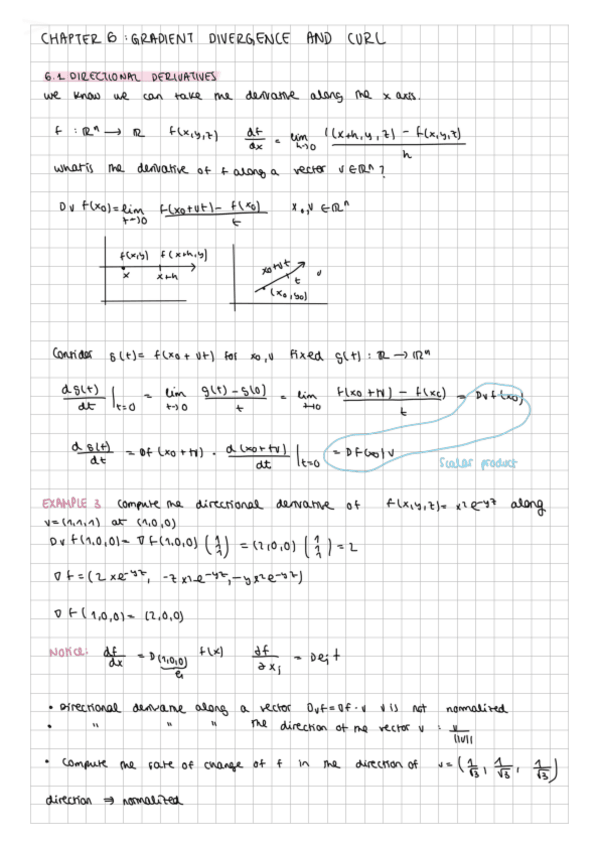 CHAPTER 6 : GRADIENT DIVERGENCE AND CURL
6.1 DIRECTIONAL DERIVATIVES
we know we can take the derivative along the x axis.
f : ℝⁿ → ℝ f(x,y,z) df/dx = lim h→0 f(x+h, y, z) - f(x,y,z) / h
what is the derivative of f along a vector v ∈ ℝⁿ?
Dv f(x0) = lim t→0 f(x0+vt) - f(x0) / t x0, v ∈ ℝⁿ
f(x,y) f(x+h,y)
x x+h
x0+vt
t
(x0, y0)
Consider g(t) = f(x0 + vt) for x0, v fixed g(t) : ℝ → ℝⁿ
dg(t)/dt |t=0 = lim t→0 g(t) - g(0) / t = lim t→0 f(x0 + tv) - f(x0) / t = Dv f(x0)
dg(t)/dt = Df(x0 + tv) · d(x0+tv)/dt |t=0 = Df(x0) v
scalar product
EXAMPLE 3 compute the directional derivative of f(x,y,z) = x²e^-yz along
v = (1,1,1) at (1,0,0)
Dv f(1,0,0) = ∇f(1,0,0) (1 1 1) = (2,0,0) (1 1 1) = 2
∇f = (2xe^-yz, -zx²e^-yz, -yx²e^-yz)
∇f(1,0,0) = (2,0,0)
NOTICE: df/dx = D(1,0,0) f(x) ∂f/∂xi = Dei f
e1
• Directional derivative along a vector Dvf = ∇f · v v is not normalized
• " " " the direction of the vector v : v/||v||
• Compute the rate of change of f in the direction of v = (1/√3, 1/√3, 1/√3)
direction ⇒ normalized